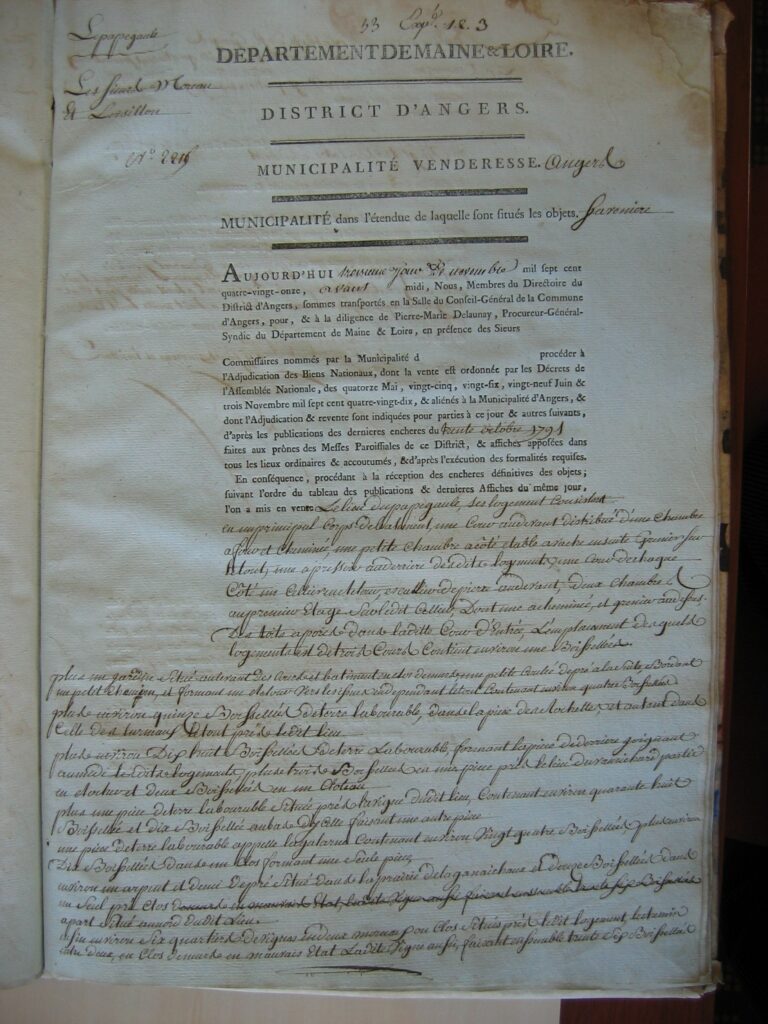 33 1er. 3
Lepapegault
Les sieurs Moreau
et Loisillon
N.o
DÉPARTEMENT DE MAINE & LOIRE.
DISTRICT D'ANGERS.
MUNICIPALITÉ VENDERESSE. Angers
MUNICIPALITÉ dans l'étendue de laquelle sont situés les objets. Saveniere
AUJOURD'HUI troisieme jour de novembre mil sept cent
quatre-vingt-onze, avant midi, Nous, Membres du Directoire du
District d'Angers, sommes transportés en la Salle du Conseil-Général de la Commune
d'Angers, pour, & à la diligence de Pierre-Marie Delaunay, Procureur-Général-
Syndic du Département de Maine & Loire, en présence des Sieurs
Commissaires nommés par la Municipalité d procéder à
l'Adjudication des Biens Nationaux, dont la vente est ordonnée par les Décrets de
l'Assemblée Nationale, des quatorze Mai, vingt-cinq, vingt-six, vingt-neuf Juin &
trois Novembre mil sept cent quatre-vingt-dix, & aliénés à la Municipalité d'Angers, &
dont l'Adjudication & revente sont indiquées pour parties à ce jour & autres suivants,
d'après les publications des dernieres encheres du trente octobre 1791
faites aux prônes des Messes Paroissiales de ce District, & affiches apposées dans
tous les lieux ordinaires & accoutumés, & d'après l'exécution des formalités requises.
En conséquence, procédant à la réception des encheres définitives des objets,
suivant l'ordre du tableau des publications & dernieres Affiches du même jour,
l'on a mis en vente Le lieu du papegault, ses logement Consistant
en un principal Corps de batiment, une Cour audevant distribué d'une chambre
a four et cheminée, une petite chambre a côté etable a vache ensuite grenier sur
le tout, une au derriere desdits logements, une Cour de chaque
Côté un Cellier de pierre audevant, deux chambres
au premier Etage sur ledit Cellier, Dont une a cheminée, et grenier au dessus.
Des toits a porcs dans ladite Cour d'Entrée, L'emplacement des quels
logements et de trois Cours Contient environ une Boisselées.
plus un jardin situé audevant des Cours et batiments une petite de pré a la suite Bordant
un petit chemin, et formant un vers independant le tout Contenant environ quatre Boisselées
plus environ quinze Boisselées de terre labourable, dans la piece des Rochettes et autant dans
Celle des le tout près ledit lieu.
plus environ Dix huit Boisselées de terre Labourable, formant la piece de derriere joignant
lesdits logements, plus trois Boisselées en une piece près le lieu du partie
en et deux Boisselées en un Cloteau
plus une piece de terre labourable située près la vigne dudit lieu, Contenant environ quarante huit
Boisselées et dix Boisselées au bas d'icelle faisant une autre piece
une piece de terre labourable appellé Contenant environ vingt quatre Boisselées plus environ
Dix Boisselées dans un Clos formant une seule piece,
environ un arpent et demi de pré situé dans la prairie de et douze Boisselées dans
un seul pré Clos
a part situé au nord dudit Lieu.
enfin environ six quartiers de vignes en deux morceaux ou Clos situés près ledit logement, le chemin
entre deux, en Clos demurés en mauvais Etat Ladite vigne aussi, faisant ensemble trente six Boisselées